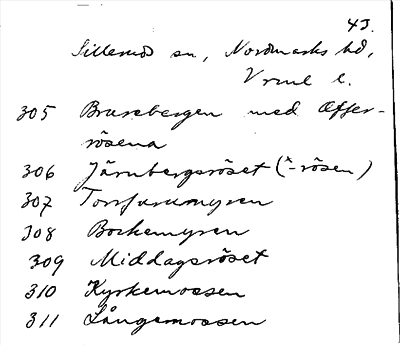 43.
Sillerud sn, Nordmarks hd,
Vrml l.
305 Brurebergen med Offer-
rösena
306 Järnbergsröset (*-rösen)
307 Torrfurumyren
308 Bockemyren
309 Middagsröset
310 Kyrkemossen
311 Långemossen